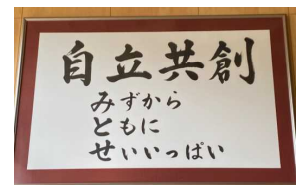 自立共創
みずから
ともに
せいいっぱい